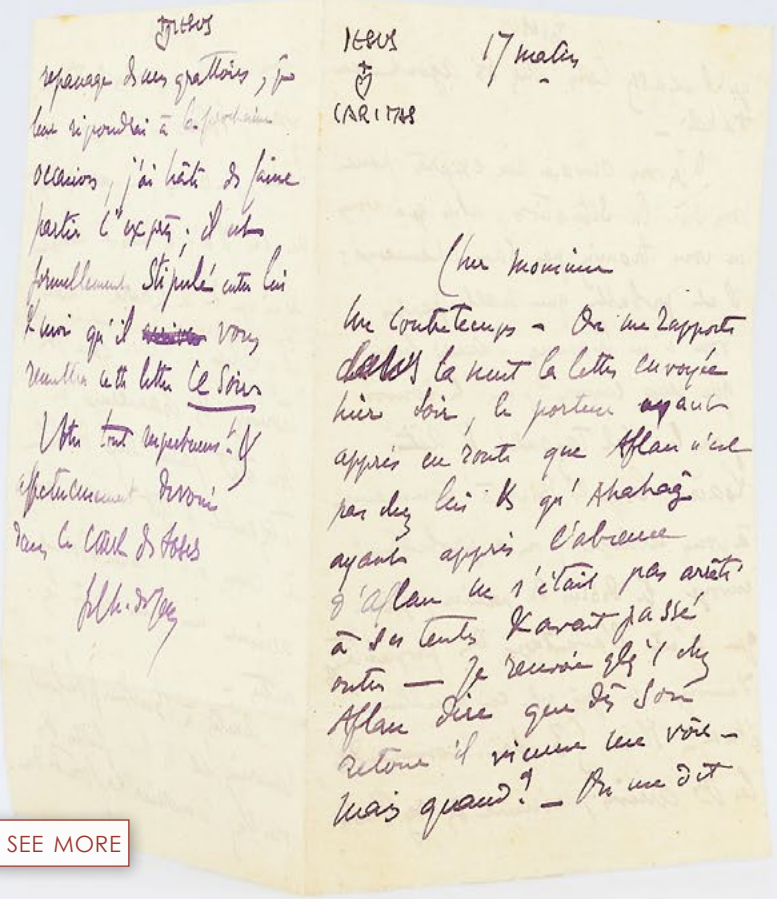 JESUS
de mes grattoirs, je
leur répondrai à la prochaine
occasion, j'ai hâte de faire
partir l'exprès ; il est
formellement stipulé entre lui
& moi qu'il vous
remettra cette lettre ce soir
Votre tout respectueusement &
affectueusement dévoué
dans le Cœur de Jésus
fr Ch. de Jésus
JESUS
CARITAS
17 matin
Cher Monsieur
Un contretemps - On me rapporte
dans la nuit la lettre envoyée
hier soir, le porteur ayant
appris en route que Aflan n'est
pas chez lui & qu'Akahag
ayant appris l'absence
d'Aflan ne s'était pas arrêté
à ses tentes & avait passé
outre — Je renvoie chez
Aflan dire que dès son
retour il vienne me voir -
mais quand ? _ On me dit
SEE MORE